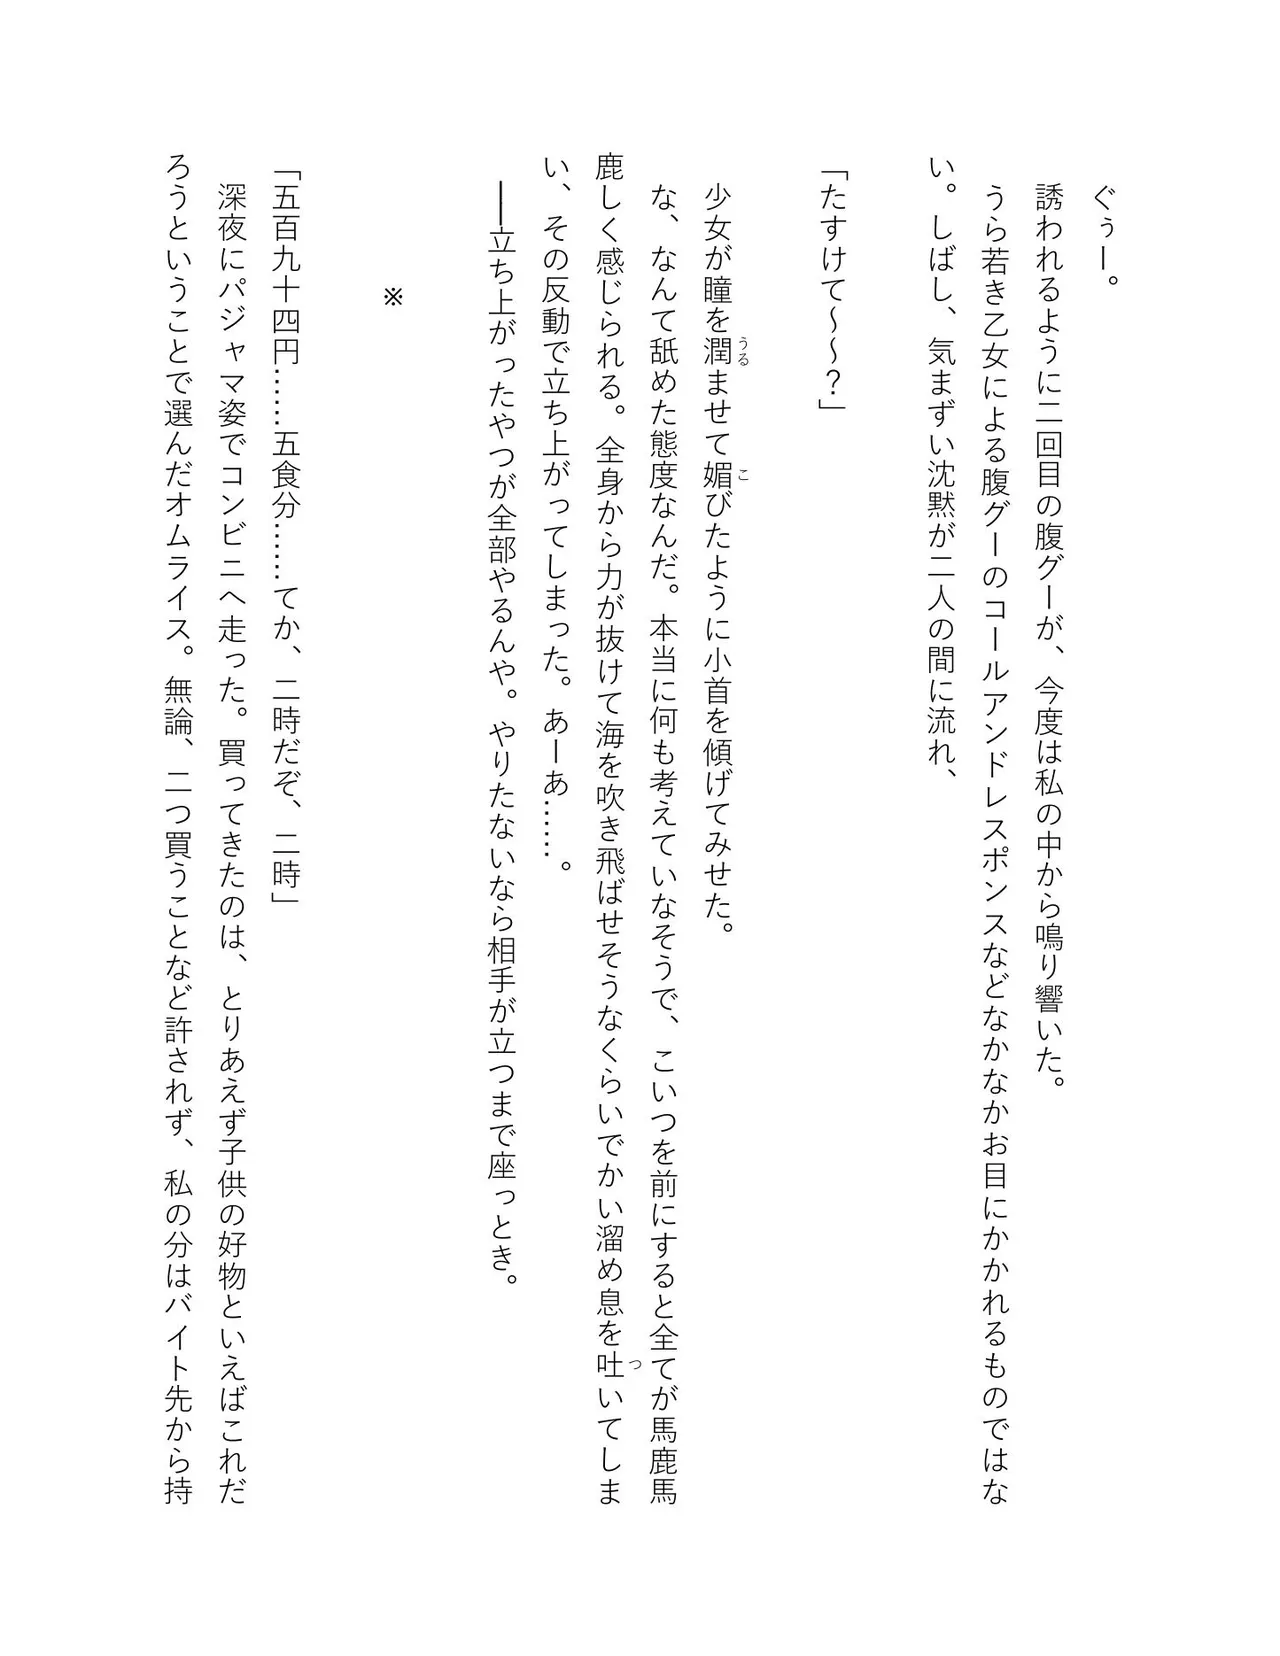 ぐぅー。
誘われるように二回目の腹グーが、今度は私の中から鳴り響いた。
うら若き乙女による腹グーのコールアンドレスポンスなどなかなかお目にかかれるものではな
い。しばし、気まずい沈黙が二人の間に流れ、
「たすけて〜〜？」
少女が瞳を潤ませて媚びたように小首を傾げてみせた。
うる
こ
な、なんて舐めた態度なんだ。本当に何も考えていなそうで、こいつを前にすると全てが馬鹿馬
鹿しく感じられる。全身から力が抜けて海を吹き飛ばせそうなくらいでかい溜め息を吐いてしま
つ
い、その反動で立ち上がってしまった。あーあ……。
――立ち上がったやつが全部やるんや。やりたないなら相手が立つまで座っとき。
※
「五百九十四円……五食分……てか、二時だぞ、二時」
深夜にパジャマ姿でコンビニへ走った。買ってきたのは、とりあえず子供の好物といえばこれだ
ろうということで選んだオムライス。無論、二つ買うことなど許されず、私の分はバイト先から持